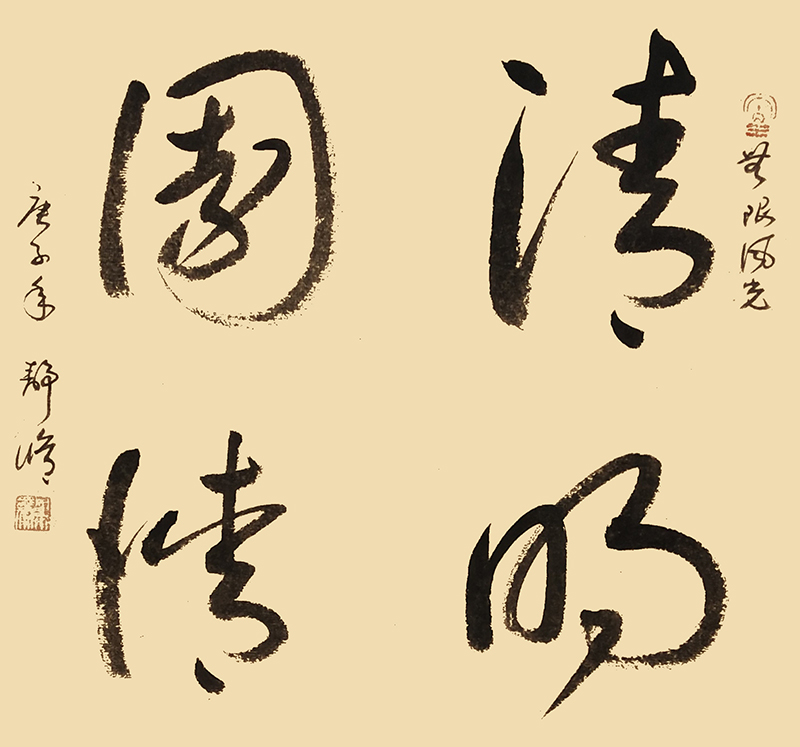 無限風光
清明
園情
庚子年 靜修